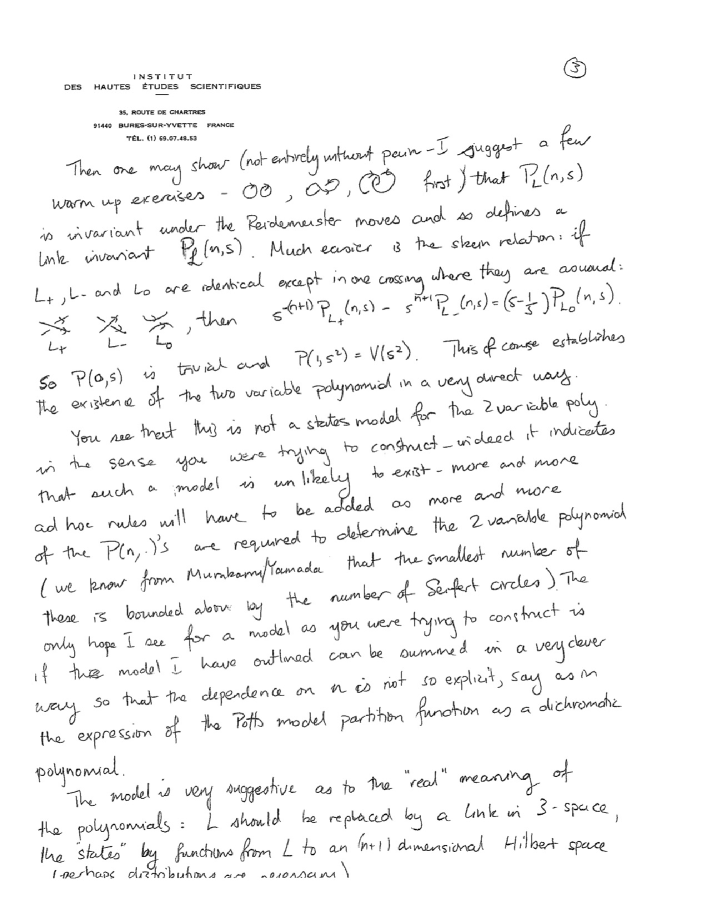 ③
INSTITUT
DES HAUTES ÉTUDES SCIENTIFIQUES
35, ROUTE DE CHARTRES
91440 BURES-SUR-YVETTE FRANCE
TÉL. (1) 69.07.48.53
Then one may show (not entirely without pain - I suggest a few
warm up exercises - , , first) that P_L(n,s)
is invariant under the Reidemeister moves and so defines a
link invariant P_L(n,s). Much easier is the skein relation: if
L+, L- and Lo are identical except in one crossing where they are as usual:
, then s^{-(n+1)} P_{L+}(n,s) - s^{n+1} P_{L-}(n,s) = (s - 1/s) P_{Lo}(n,s).
L+ L- Lo
So P(0,s) is trivial and P(1,s²) = V(s²). This of course establishes
the existence of the two variable polynomial in a very direct way.
You see that this is not a states model for the 2 variable poly.
in the sense you were trying to construct - indeed it indicates
that such a model is unlikely to exist - more and more
ad hoc rules will have to be added as more and more
of the P(n, .)'s are required to determine the 2 variable polynomial
(we know from Murakami/Yamada that the smallest number of
these is bounded above by the number of Seifert circles). The
only hope I see for a model as you were trying to construct is
if the model I have outlined can be summed in a very clever
way so that the dependence on n is not so explicit, say as in
the expression of the Potts model partition function as a dichromatic
polynomial.
The model is very suggestive as to the "real" meaning of
the polynomials: L should be replaced by a link in 3-space,
the "states" by functions from L to an (n+1) dimensional Hilbert space
(perhaps distributions are necessary)